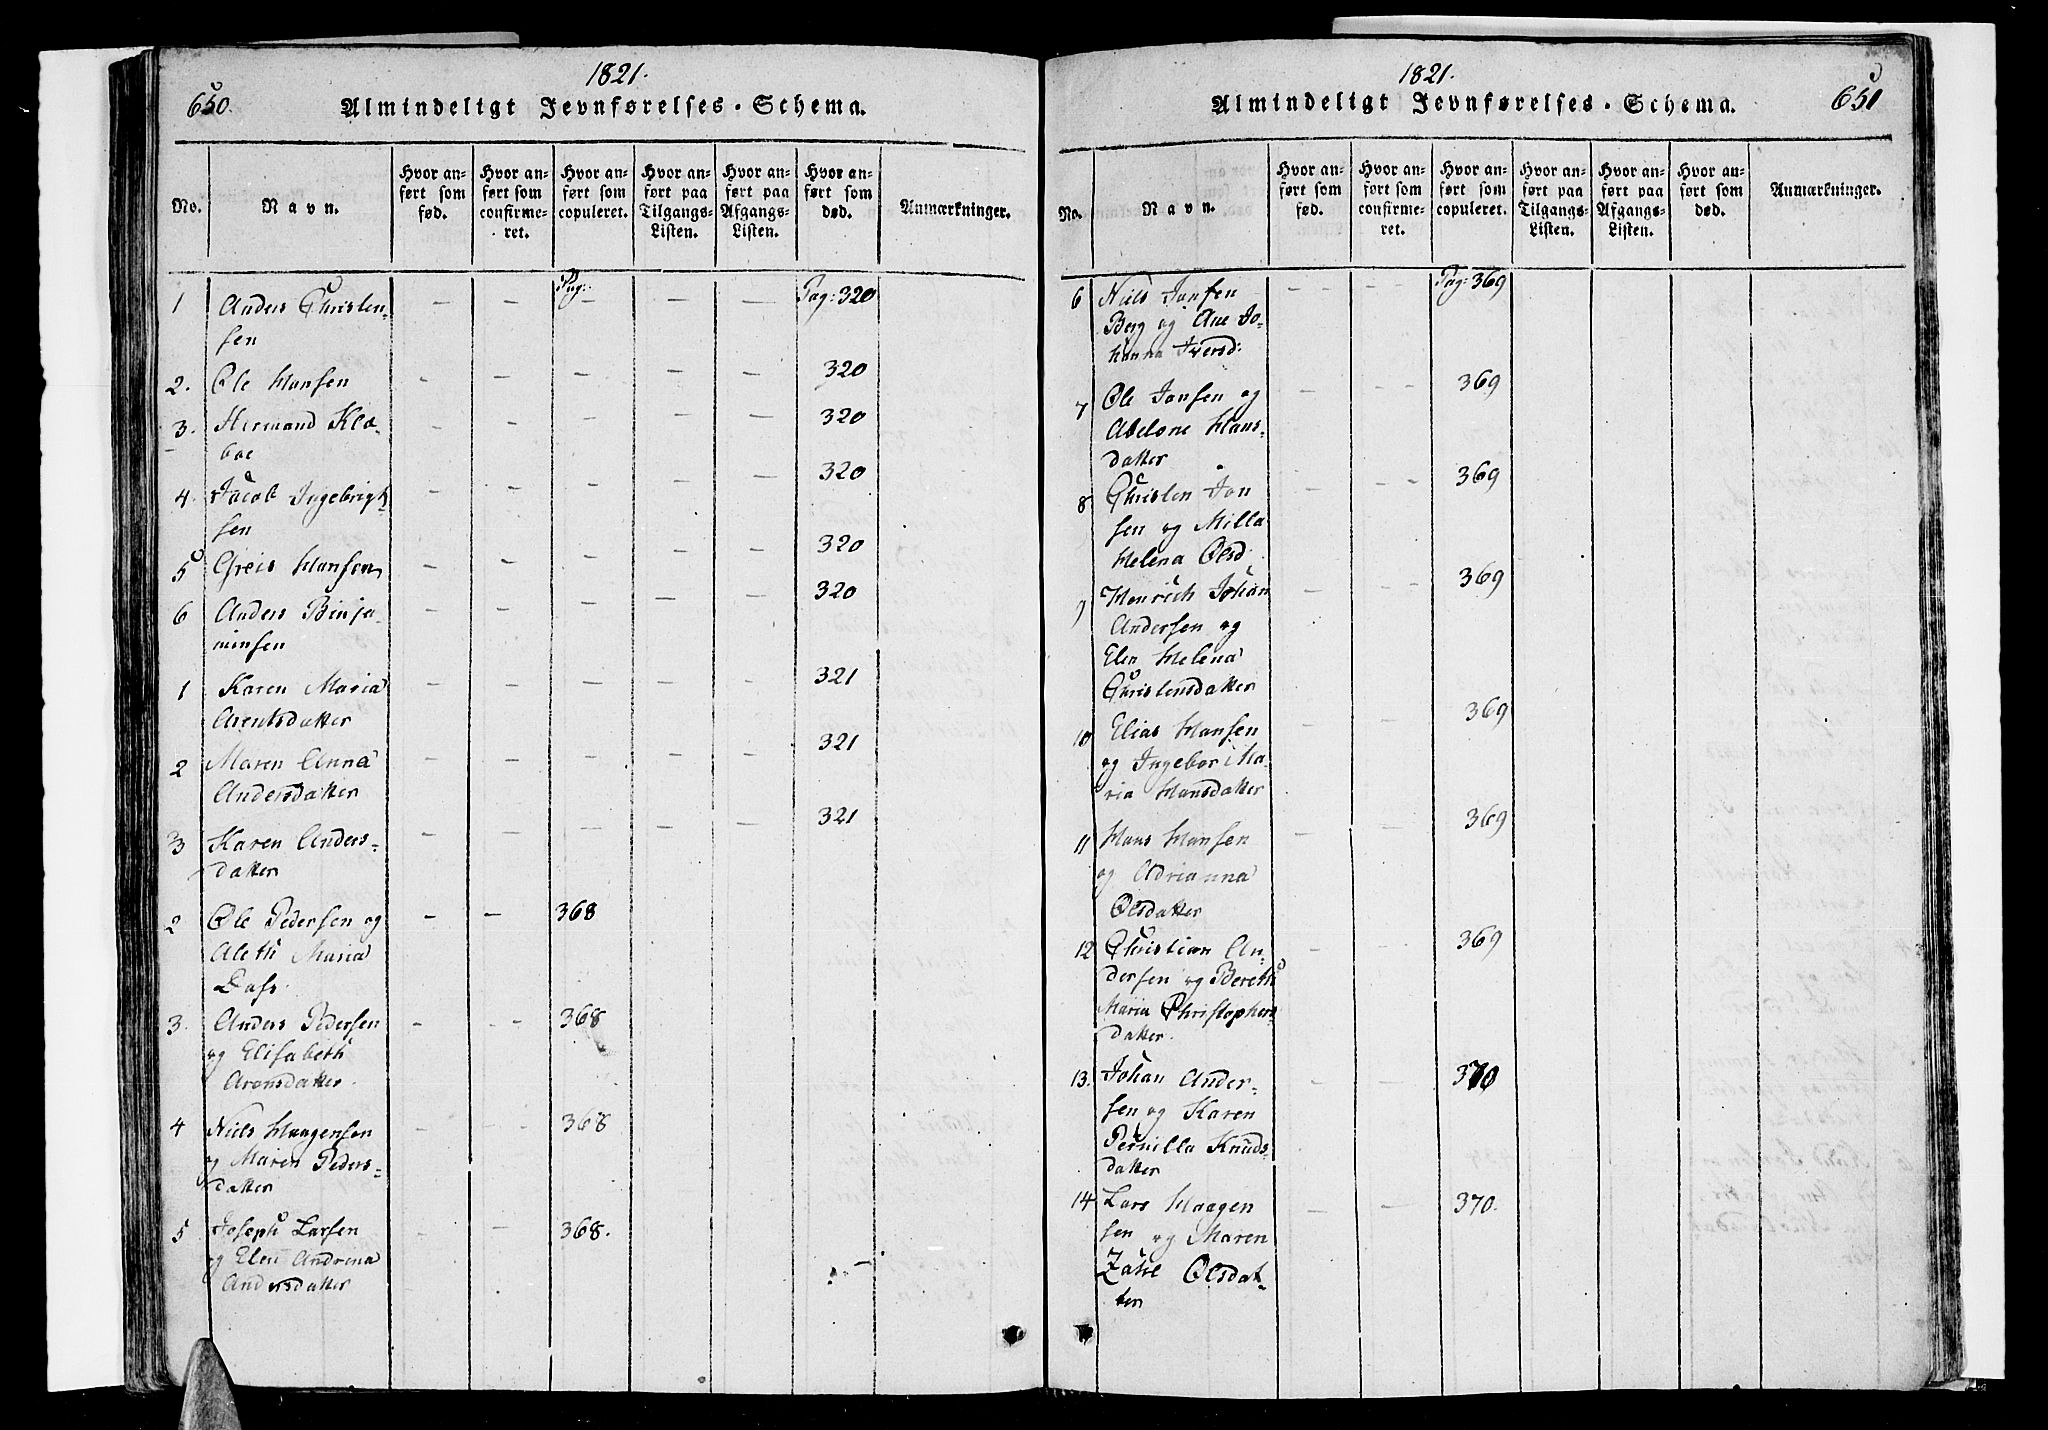 1821.
650.
Almindeligt Jevnførelses-Schema.
No.
Navn.
Hvor an-
ført som
fød.
Hvor an-
ført som
confirme-
ret.
Hvor an-
ført som
copuleret.
Hvor an-
ført paa
Tilgangs-
Listen.
Hvor an-
ført paa
Afgangs-
Listen.
Hvor an-
ført som
død.
Anmærkninger.
1 Anders Christen- — — Pag: — — — Pag: 320
sen
2. Ole Hansen — — — — — 320
3. Hermand Kla- — — — — — 320
boe
4. Jacob Ingebrigt — — — — — 320
sen
5 Greis Hansen — — — — — 320
6 Anders Binja- — — — — — 320
minsen
1 Karen Maria — — — — — 321
Arentsdatter
2 Maren Anna — — — — — 321
Andersdatter
3 Karen Anders- — — — — — 321
datter
2 Ole Pedersen og — — 368
Aleth Maria
Dass
3. Anders Pedersen — — 368
og Elisabeth
Aronsdatter
4 Niels Haagensen — — 368
og Maren Peders-
datter
5 Joseph Larsen — — 368.
og Elen Andrina
Andersdatter
1821.
651
Almindeligt Jevnførelses-Schema.
No.
Navn.
Hvor an-
ført som
fød.
Hvor an-
ført som
confirme-
ret.
Hvor an-
ført som
copuleret.
Hvor an-
ført paa
Tilgangs-
Listen.
Hvor an-
ført paa
Afgangs-
Listen.
Hvor an-
ført som
død.
Anmærkninger.
6 Niels Jansen — — Pag: 369
Berg og Ane Jo-
hanna Iversd:
7 Ole Jansen og — — 369
Abelone Hans-
datter
8 Christen Jan — — 369
sen og Milla
Helena Olsd:
9 Henrich Johan — — 369
Andersen og
Elen Helena
Christensdatter
10 Elias Hansen — — 369
og Ingebor Ma-
ria Hansdatter
11 Hans Hansen — — 369
og Adrianna
Olsdatter
12 Christian An- — — 369
dersen og Bereth
Maria Christopher-
datter.
13. Johan Ander- — — 370
sen og Karen
Pernilla Knuds-
datter
14 Lars Haagen — — 370.
sen og Maren
Zakel Olsdat-
ter